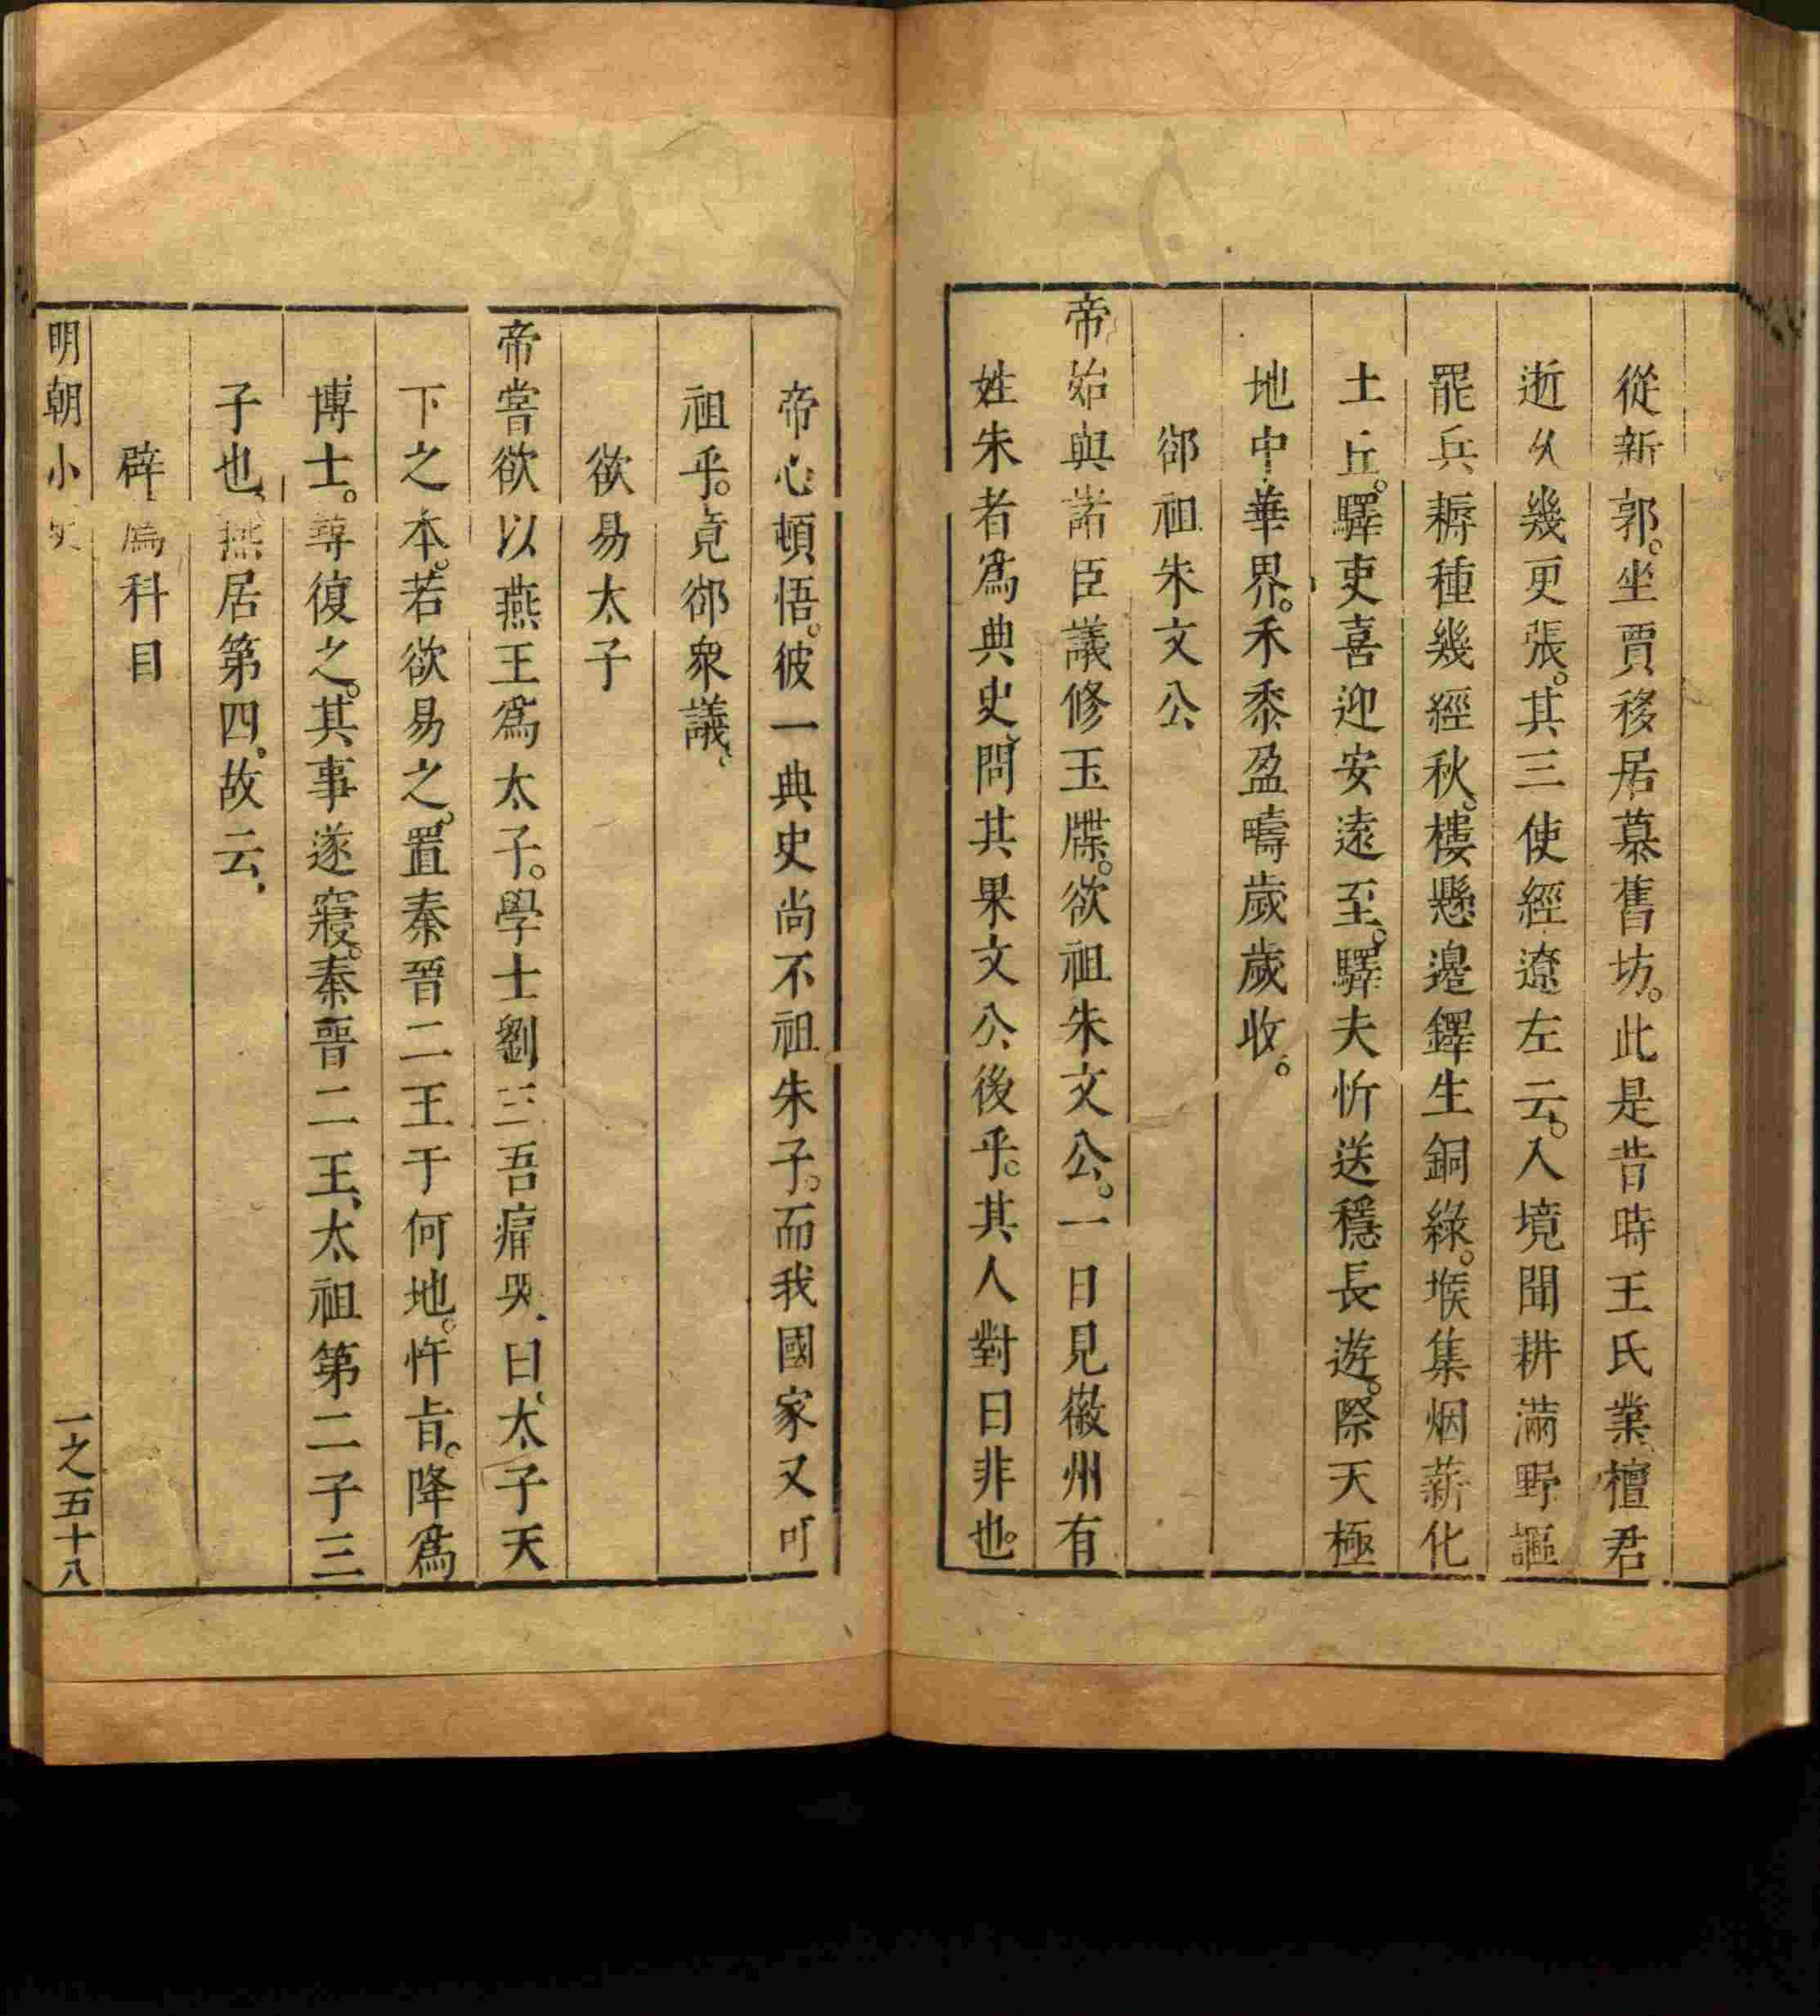 從新郭。坐賈移居慕舊坊。此是昔時王氏業檀君
逝久幾更張。其三使經遼左云。入境聞耕滿野謳
罷兵耨種幾經秋。樓懸邊鐸生銅綠。堠集烟薪化
土丘。驛吏喜迎安遠至。驛夫忻送穩長遊。際天極
地中華界。禾黍盈疇歲歲收。
郤祖朱文公
帝始與諸臣議修玉牒。欲祖朱文公。一日見徽州有
姓朱者爲典史、問其果文公後乎。其人對曰非也。
帝心頓悟。彼一典史尚不祖朱子。而我國家又可
祖乎。竟郤衆議、
欲易太子
帝嘗欲以燕王爲太子。學士劉三吾痛哭、曰、太子天
下之本。若欲易之。置秦晉二王于何地。忤旨。降爲
博士。尋復之。其事遂寢。秦晉二王、太祖第二子三
子也、燕居第四。故云、
辟爲科目
明朝小史
一之五十八